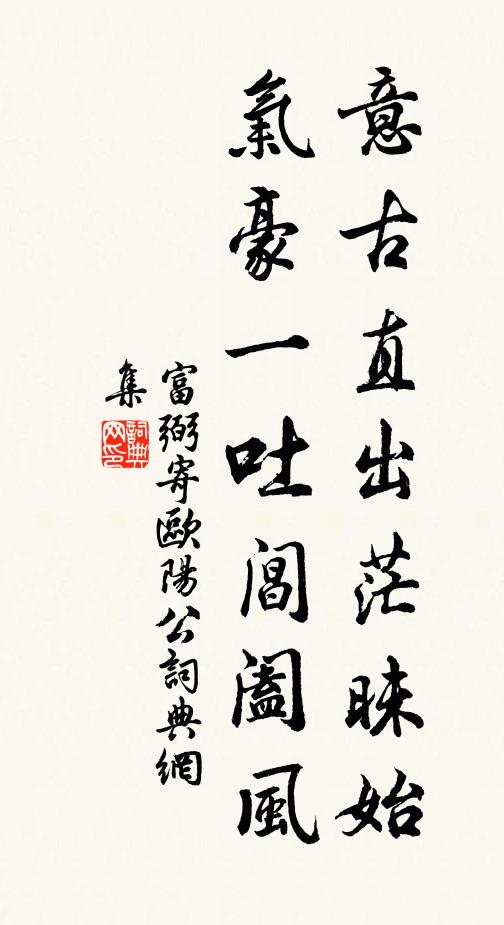 意古直出茫昧始
氣豪一吐閶闔風
富弼寄歐陽公詞典網
集
詞典网印